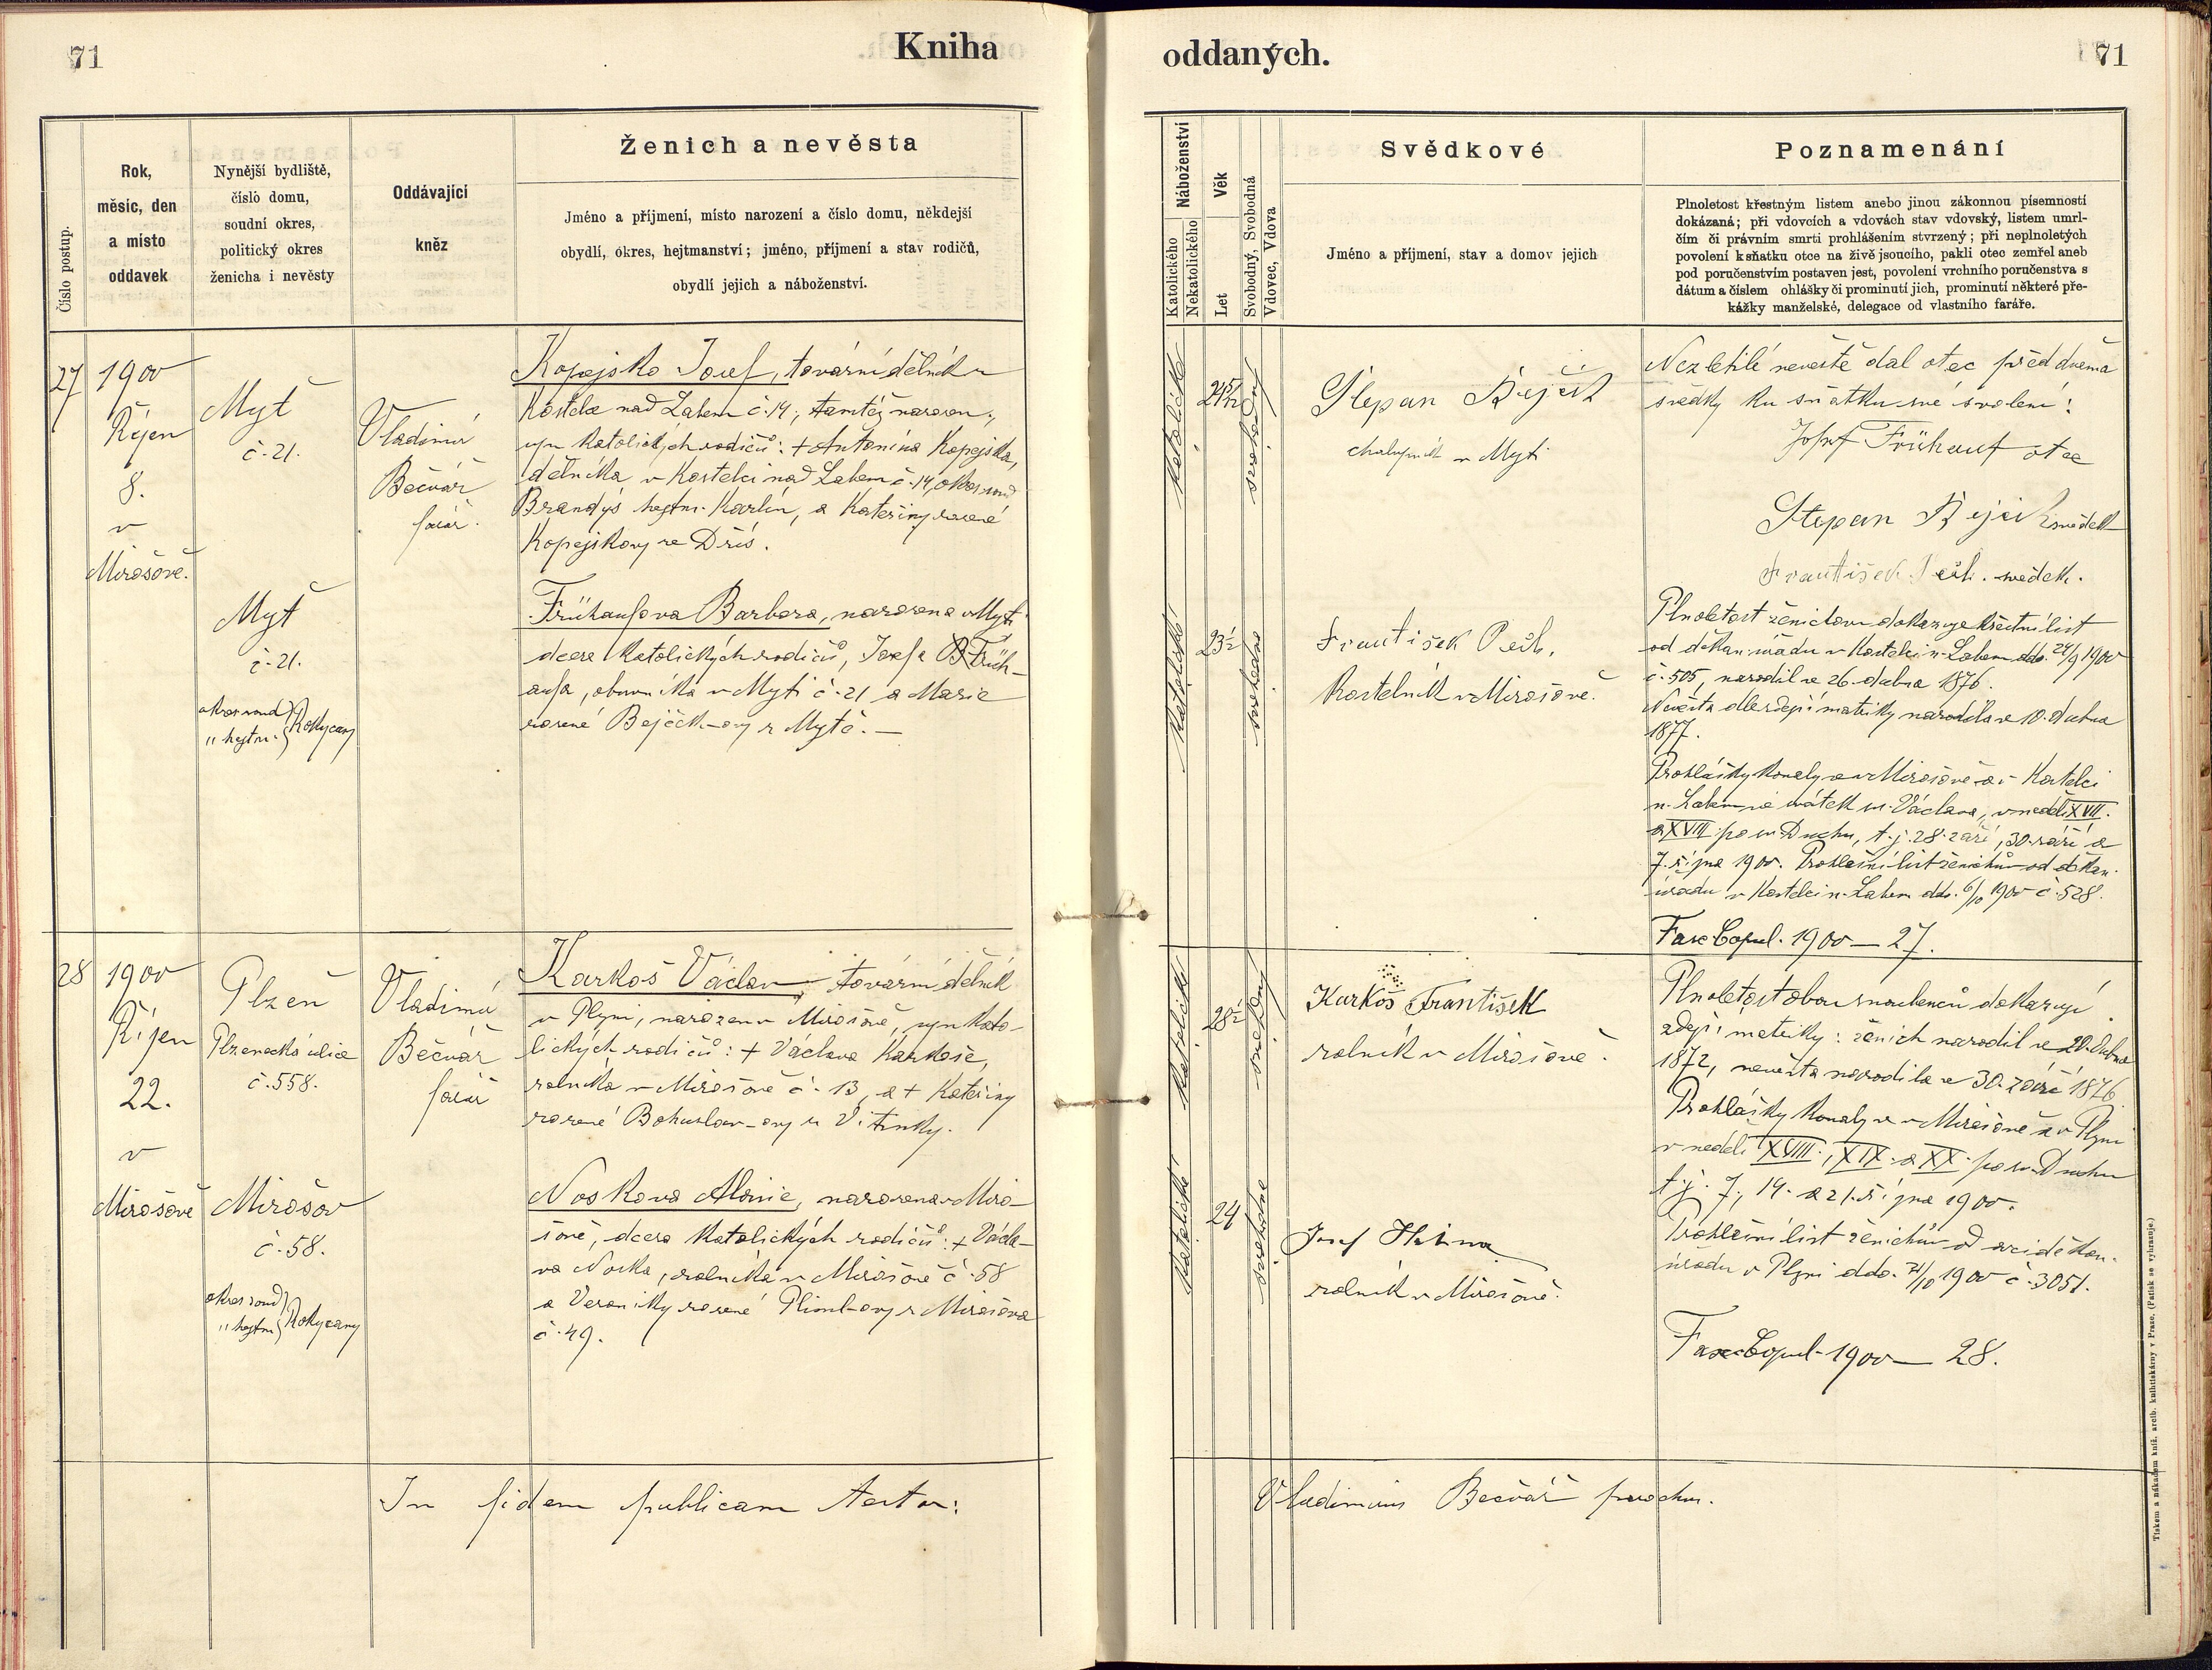 71
Kniha
Číslo postup.
Rok,
měsíc, den
a místo
oddavek
Nynější bydliště,
číslo domu,
soudní okres,
politický okres
ženicha i nevěsty
Oddávající
kněz
Ženich a nevěsta
Jméno a příjmení, místo narození a číslo domu, někdejší
obydlí, okres, hejtmanství; jméno, příjmení a stav rodičů,
obydlí jejich a náboženství.
27
1900
Říjen
8.
v
Mirošově.
Myť
č. 21.
Myť
č. 21.
okres soud
" hejtm. } Rokycany
Vladimír
Bečvář
farář.
Kopejsko Josef, tovární dělník v
Kostelci nad Labem č. 14, tamtéž narozen,
syn katolických rodičů: + Antonína Kopejska,
dělníka v Kostelci nad Labem č. 14, okres soud
Brandýs hejtm. Karlín, a Kateřiny rozené
Kopejskovy ze Dřís.
Frühaufova Barbora, narozena v Myti
dcera katolických rodičů, Josefa Früh-
aufa, obuvníka v Myti č. 21 a Marie
rozené Bejčk-ovy z Mytě. —
28
1900
Říjen
22.
v
Mirošově
Plzeň
Plzenecká ulice
č. 558.
Mirošov
č. 58.
okres soud
" hejtm } Rokycany
Vladimír
Bečvář
farář
Karkoš Václav, tovární dělník
v Plzni, narozen v Mirošově, syn kato-
lických rodičů: + Václava Karkoše,
rolníka v Mirošově č. 13, a + Kateřiny
rozené Bohuslav-ovy z Vitinky.
Noskova Marie, narozena v Miro-
šově, dcera katolických rodičů: + Václa-
va Noska, rolníka v Mirošově č. 58
a Veroniky rozené ovy z Mirošova
č. 49.
In fidem publicam testor:
oddaných.
71
Náboženství
Katolického
Nekatolického
Věk
Let
Svobodný, Svobodná
Vdovec, Vdova
Svědkové
Jméno a příjmení, stav a domov jejich
Poznamenání
Plnoletost křestným listem anebo jinou zákonnou písemností
dokázaná; při vdovcích a vdovách stav vdovský, listem umrl-
čím či právním smrti prohlášením stvrzený; při neplnoletých
povolení k sňatku otce na živě jsoucího, pakli otec zemřel aneb
pod poručenstvím postaven jest, povolení vrchního poručenstva s
dátum a číslem ohlášky či prominutí jich, prominutí některé pře-
kážky manželské, delegace od vlastního faráře.
katolické
24 5/12
svobodný
Štěpan Bejček
chalupník v Myti
katolické
23½
svobodna
František Pech.
kostelník v Mirošově.
Nezletilé nevěstě dal otec před dvěma
svědky ku sňatku své svolení:
Josef Frühauf otec
Stepan Bejček svědek
František Pech. svědek.
Plnoletost ženichovu dokazuje křestní list
od děkan. úřadu v Kostelci n. Labem ddo. 24/9 1900
č. 505, narodil se 26. dubna 1876.
Nevěsta dle zdejší matriky narodila se 10. dubna
1877.
Prohlášky konaly se v Mirošově a v Kostelci
n. Labem ve svátek sv. Václava, v neděli XVII.
a XVIII. po sv. Duchu, t. j. 28. září, 30. září a
7. října 1900. Prohlašní list ženichův od děkan.
úřadu v Kostelci n. Labem ddo. 6/10 1900 č. 528.
Fasc Copul. 1900 — 27.
katolické
28½
svobodný
Karkoš František
rolník v Mirošově.
katolické
24
svobodna
Josef
rolník v Mirošově.
Plnoletost obou snoubenců dokazují
zdejší matriky: ženich narodil se 20. dubna
1872, nevěsta narodila se 30. září 1876.
Prohlášky konaly se v Mirošově a v Plzni
v neděli XVIII., XIX. a XX. po sv. Duchu
t. j. 7., 14. a 21. října 1900.
Prohlašní list ženichův od arciděkan.
úřadu v Plzni ddo. 21/10 1900 č. 3051.
Fasc. Copul. 1900 — 28.
Vladimirus Bečvář parochus.
Tiskem a nákladem kníž. arcib. knihtiskárny v Praze. (Patisk se vyhrazuje.)